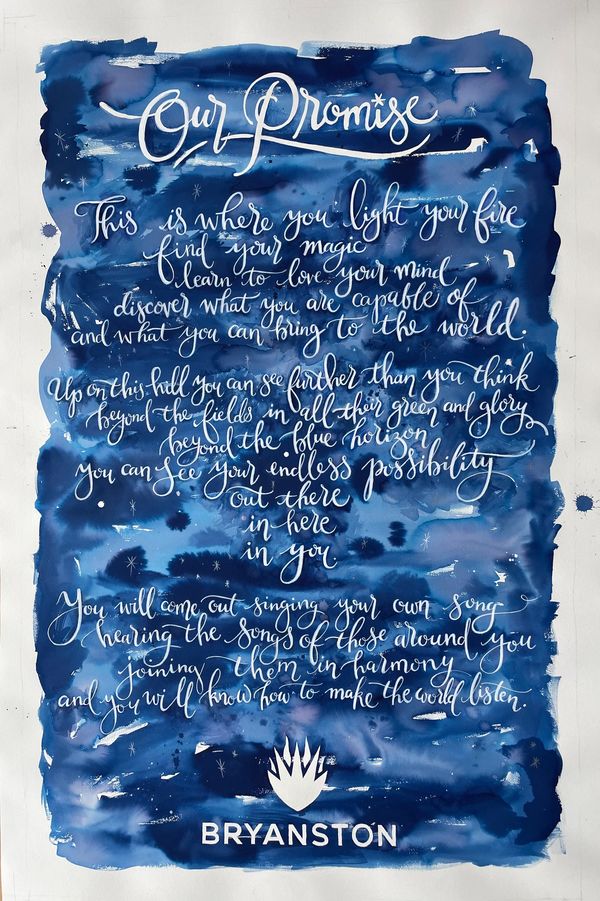 Our Promise
This is where you light your fire
find your magic
learn to love your mind
discover what you are capable of
and what you can bring to the world.
Up on this hill you can see further than you think
beyond the fields in all their green and glory
beyond the blue horizon
you can see your endless possibility
out there
in here
in you
You will come out singing your own song
hearing the songs of those around you
joining them in harmony
and you will know how to make the world listen.
BRYANSTON